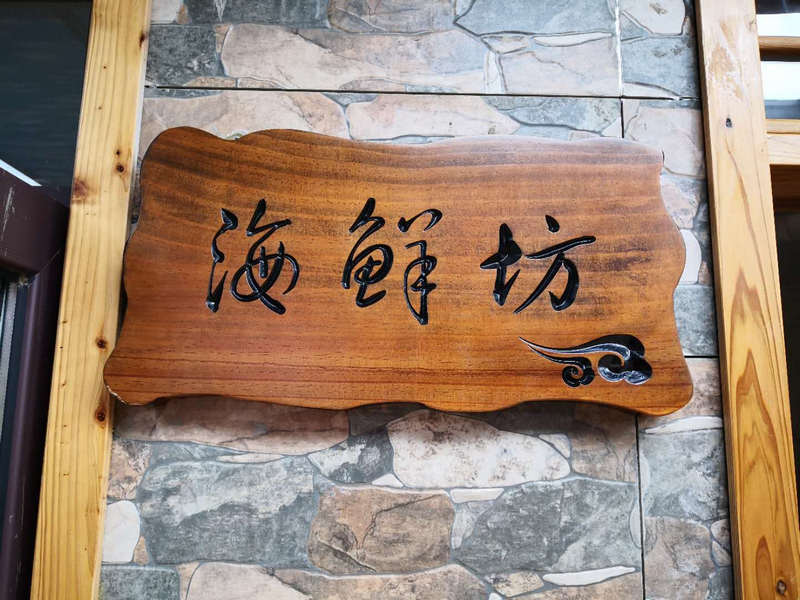 海鲜坊